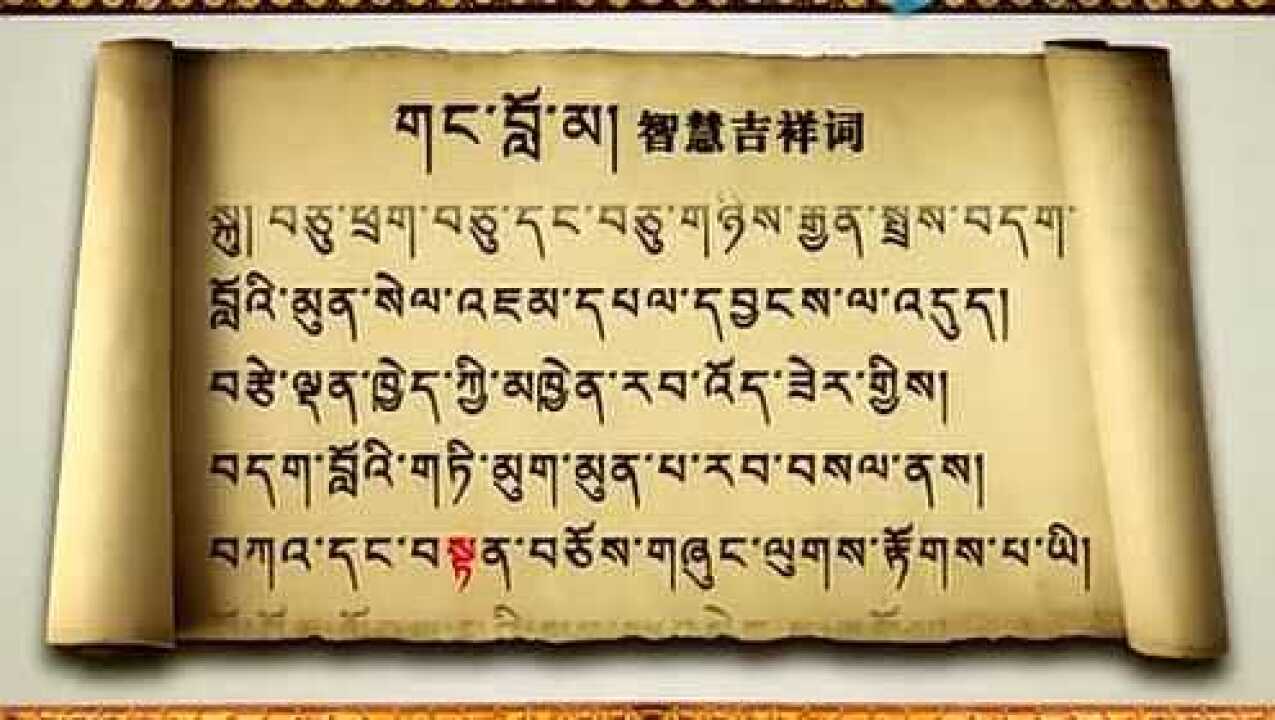 གང་བློ་མ། 智慧吉祥词
སྐུ། བཅུ་ཕྲག་བཅུ་དང་བཅུ་གཉིས་རྒྱན་སྤྲས་བདག་
བློའི་མུན་སེལ་འཇམ་དཔལ་དབྱངས་ལ་འདུད།
བརྩེ་ལྡན་ཁྱེད་ཀྱི་མཁྱེན་རབ་འོད་ཟེར་གྱིས།
བདག་བློའི་གཏི་མུག་མུན་པ་རབ་བསལ་ནས།
བཀའ་དང་བསྟན་བཅོས་གཞུང་ལུགས་རྟོགས་པ་ཡི།